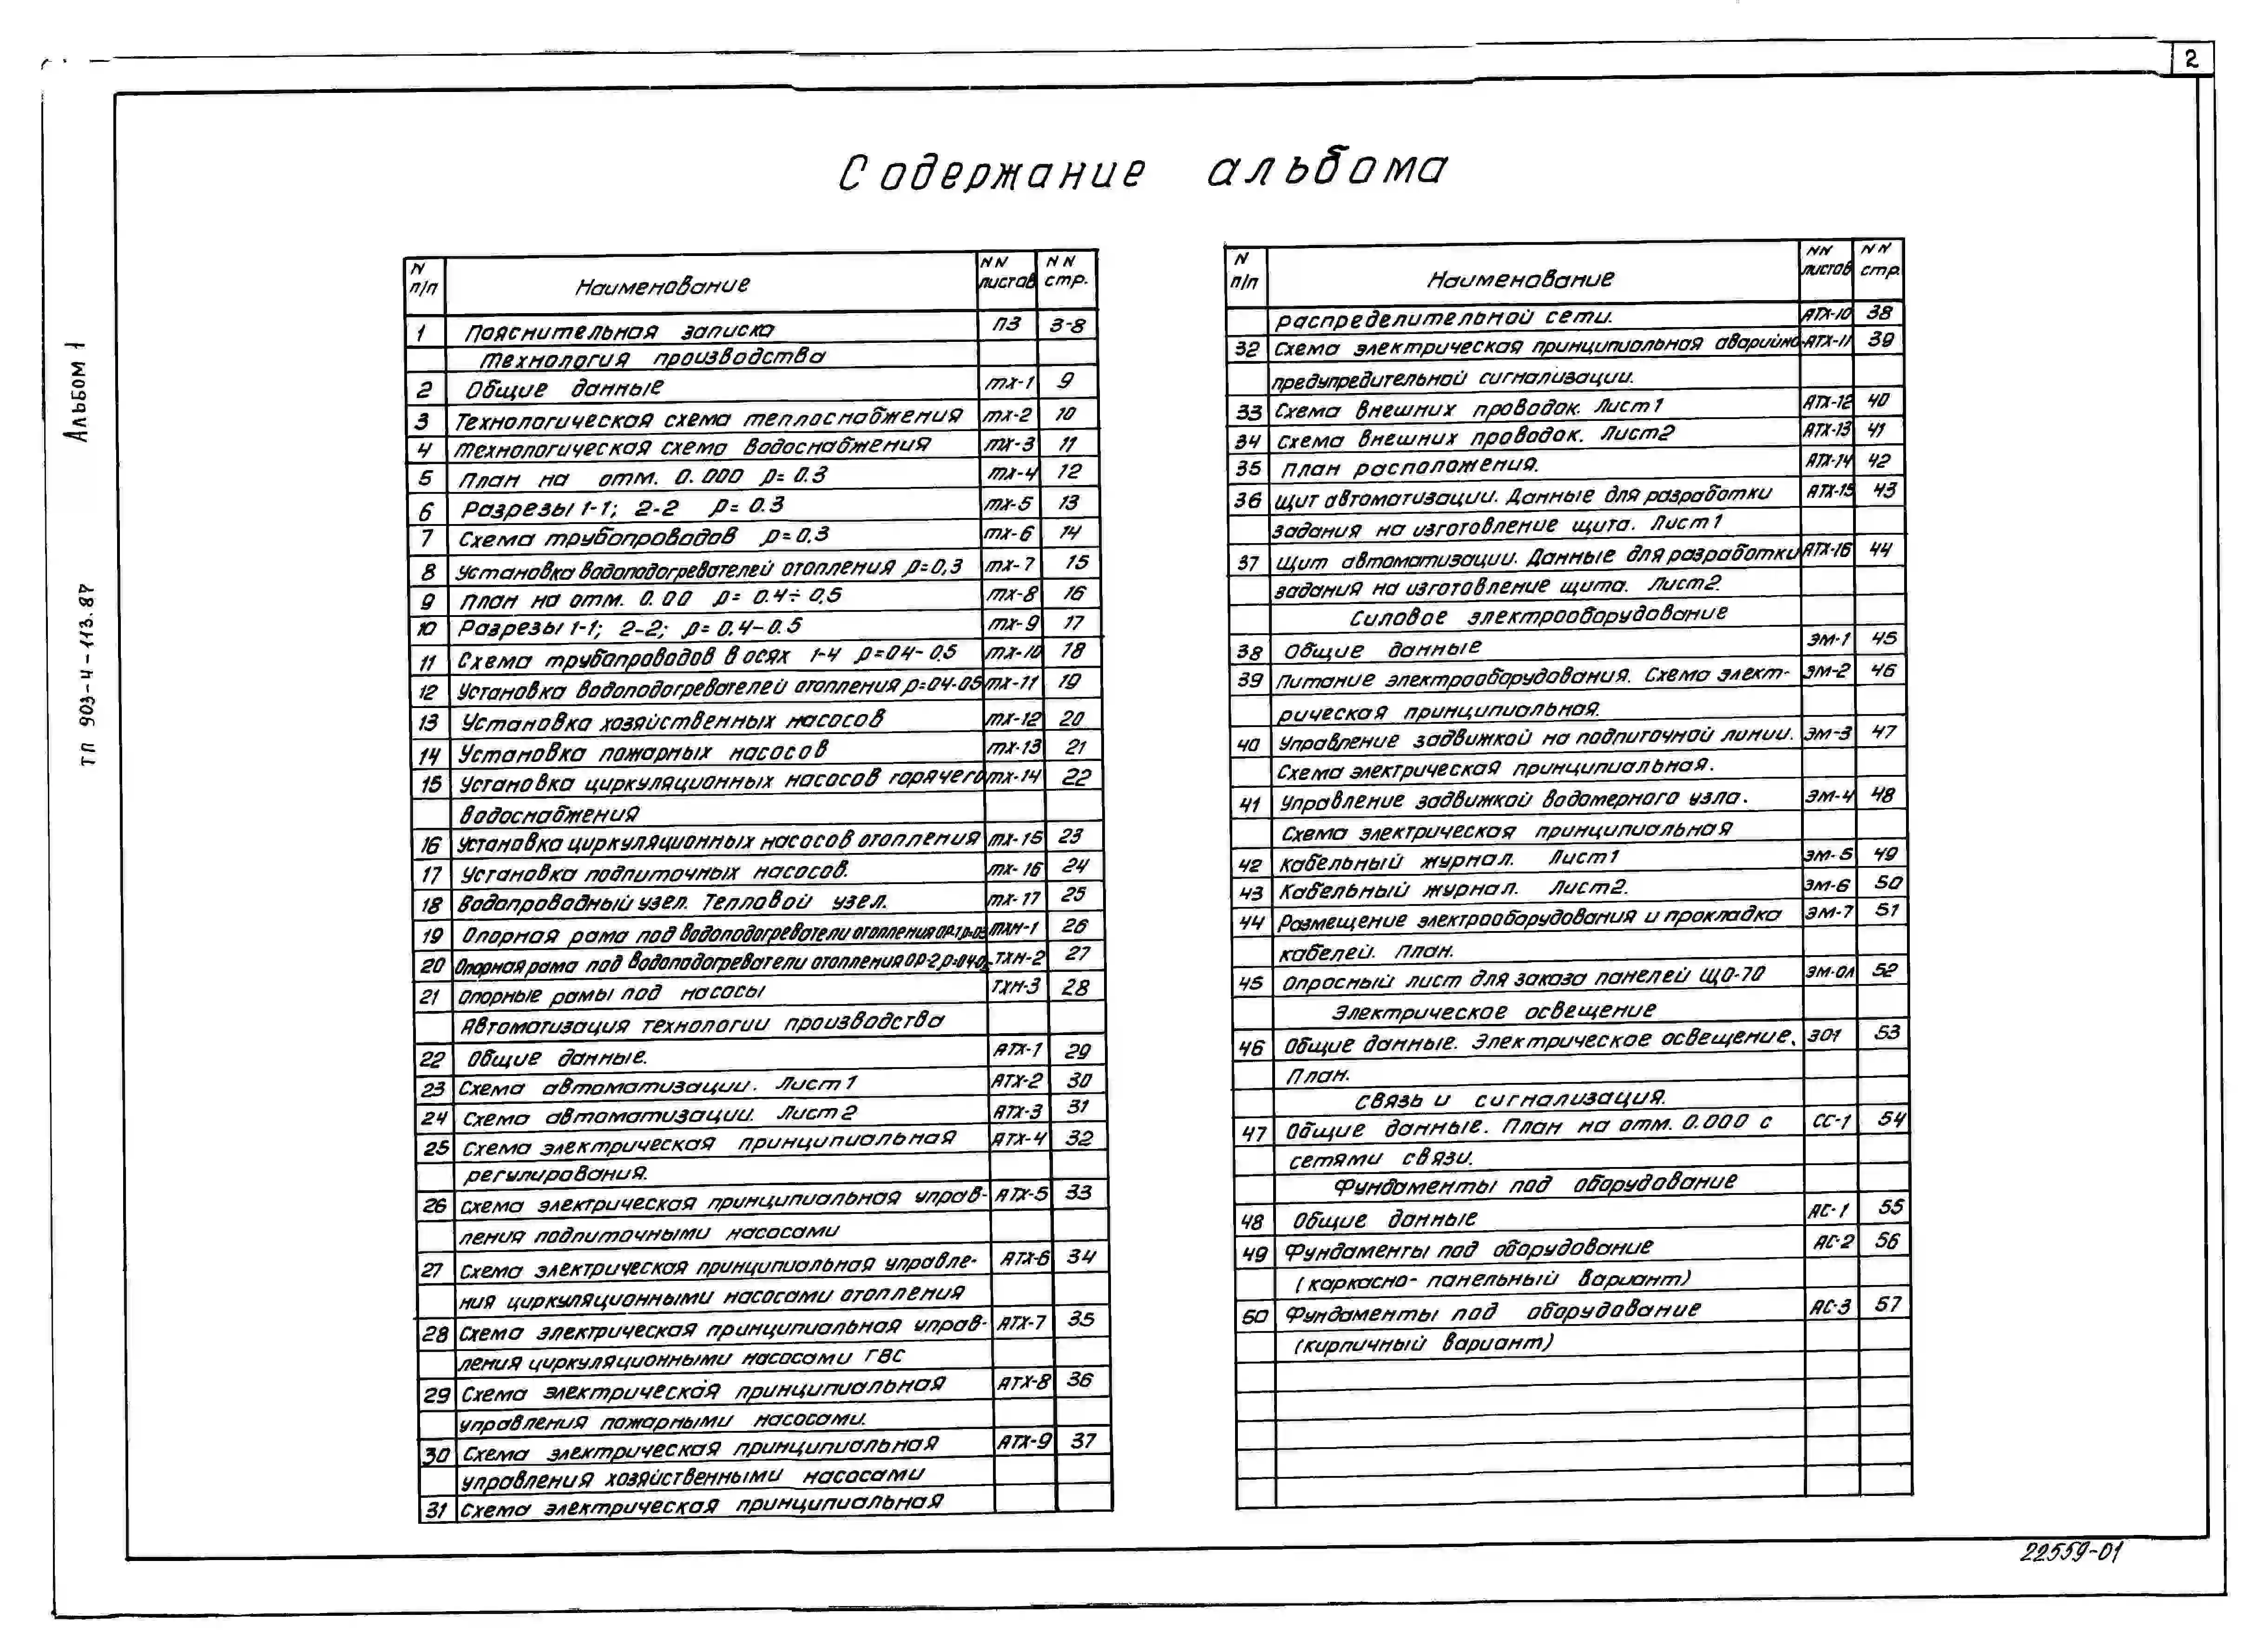 2
Альбом 1
ТП 903-4-113.87
Содержание альбома
N п/п Наименование NN листов NN стр.
1 Пояснительная записка ПЗ 3-8
Технология производства
2 Общие данные ТХ-1 9
3 Технологическая схема теплоснабжения ТХ-2 10
4 Технологическая схема водоснабжения ТХ-3 11
5 План на отм. 0.000 р=0.3 ТХ-4 12
6 Разрезы 1-1; 2-2 р=0.3 ТХ-5 13
7 Схема трубопроводов р=0.3 ТХ-6 14
8 Установка водоподогревателей отопления р=0,3 ТХ-7 15
9 План на отм. 0.00 р=0.4÷0,5 ТХ-8 16
10 Разрезы 1-1; 2-2; р=0.4-0.5 ТХ-9 17
11 Схема трубопроводов в осях 1-4 р=04-0.5 ТХ-10 18
12 Установка водоподогревателей отопления р=04-05 ТХ-11 19
13 Установка хозяйственных насосов ТХ-12 20
14 Установка пожарных насосов ТХ-13 21
15 Установка циркуляционных насосов горячего ТХ-14 22
водоснабжения
16 Установка циркуляционных насосов отопления ТХ-15 23
17 Установка подпиточных насосов. ТХ-16 24
18 Водопроводный узел. Тепловой узел. ТХ-17 25
19 Опорная рама под водоподогреватели отопления ОР-1 р=03 ТХН-1 26
20 Опорная рама под водоподогреватели отопления ОР-2 ТХН-2 27
21 Опорные рамы под насосы ТХН-3 28
Автоматизация технологии производства
22 Общие данные. АТХ-1 29
23 Схема автоматизации. Лист 1 АТХ-2 30
24 Схема автоматизации. Лист 2 АТХ-3 31
25 Схема электрическая принципиальная АТХ-4 32
регулирования.
26 Схема электрическая принципиальная управ- АТХ-5 33
ления подпиточными насосами
27 Схема электрическая принципиальная управле- АТХ-6 34
ния циркуляционными насосами отопления
28 Схема электрическая принципиальная управ- АТХ-7 35
ления циркуляционными насосами ГВС
29 Схема электрическая принципиальная АТХ-8 36
управления пожарными насосами.
30 Схема электрическая принципиальная АТХ-9 37
управления хозяйственными насосами
31 Схема электрическая принципиальная
N п/п Наименование NN листов NN стр.
распределительной сети. АТХ-10 38
32 Схема электрическая принципиальная аварийно- АТХ-11 39
предупредительной сигнализации.
33 Схема внешних проводок. Лист 1 АТХ-12 40
34 Схема внешних проводок. Лист 2 АТХ-13 41
35 План расположения. АТХ-14 42
36 Щит автоматизации. Данные для разработки АТХ-15 43
задания на изготовление щита. Лист 1
37 Щит автоматизации. Данные для разработки АТХ-16 44
задания на изготовление щита. Лист 2.
Силовое электрооборудование
38 Общие данные ЭМ-1 45
39 Питание электрооборудования. Схема элект- ЭМ-2 46
рическая принципиальная.
40 Управление задвижкой на подпиточной линии. ЭМ-3 47
Схема электрическая принципиальная.
41 Управление задвижкой водомерного узла. ЭМ-4 48
Схема электрическая принципиальная
42 Кабельный журнал. Лист 1 ЭМ-5 49
43 Кабельный журнал. Лист 2. ЭМ-6 50
44 Размещение электрооборудования и прокладка ЭМ-7 51
кабелей. План.
45 Опросный лист для заказа панелей ЩО-70 ЭМ-ОЛ 52
Электрическое освещение
46 Общие данные. Электрическое освещение. ЭО1 53
План.
Связь и сигнализация.
47 Общие данные. План на отм. 0.000 с СС-1 54
сетями связи.
Фундаменты под оборудование
48 Общие данные АС-1 55
49 Фундаменты под оборудование АС-2 56
(каркасно-панельный вариант)
50 Фундаменты под оборудование АС-3 57
(кирпичный вариант)
22559-01